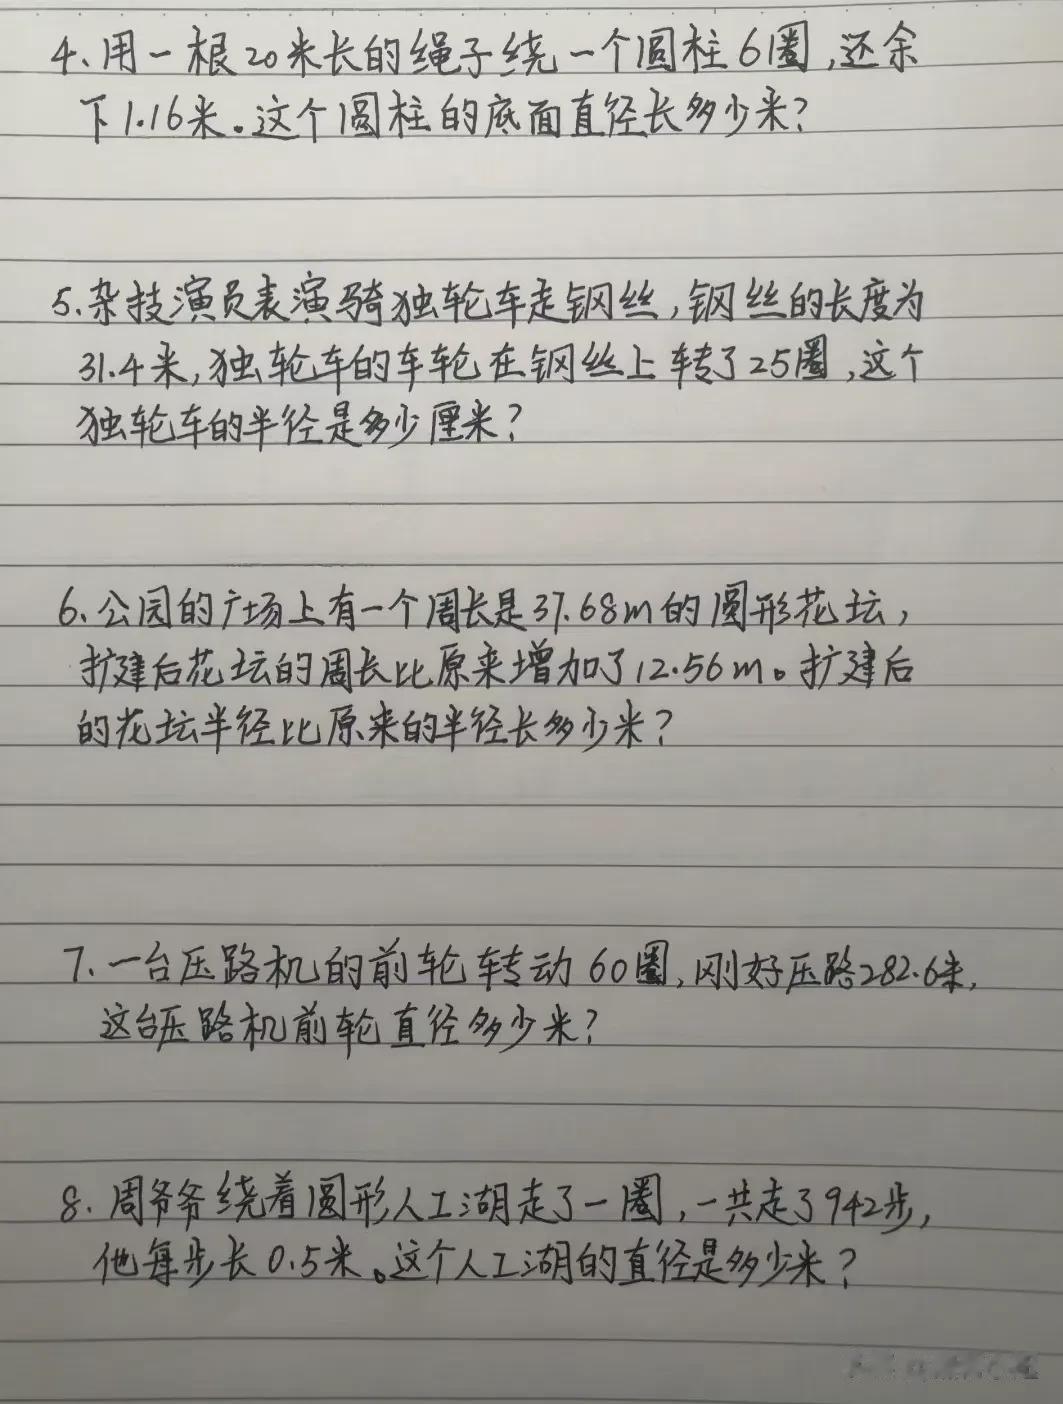 4、用一根20米长的绳子绕一个圆柱6圈,还余
下1.16米。这个圆柱的底面直径长多少米?
5、杂技演员表演骑独轮车走钢丝,钢丝的长度为
31.4米,独轮车的车轮在钢丝上转了25圈,这个
独轮车的半径是多少厘米?
6、公园的广场上有一个周长是37.68m的圆形花坛,
扩建后花坛的周长比原来增加了12.56m。扩建后
的花坛半径比原来的半径长多少米?
7、一台压路机的前轮转动60圈,刚好压路282.6米,
这台压路机前轮直径多少米?
8、周爷爷绕着圆形人工湖走了一圈,一共走了942步,
他每步长0.5米。这个人工湖的直径是多少米?